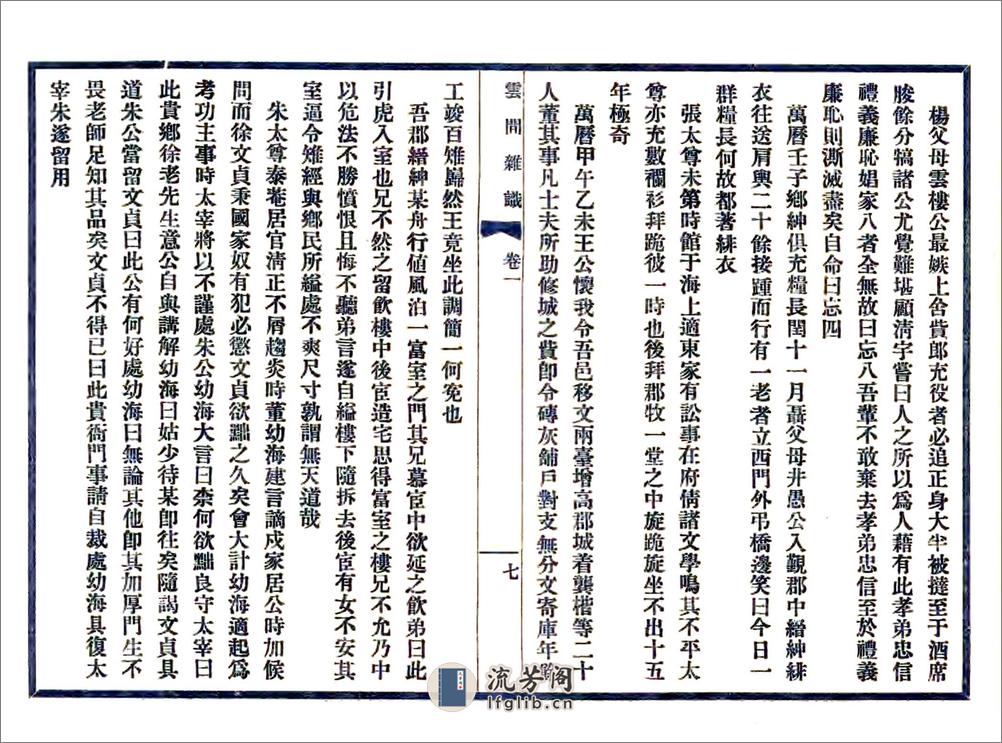 楊父母雲樓公最嫉上舍貲郎充役者必追正身大半被撻至于酒席
朘餘分犒諸公尤覺難堪顧淸字嘗曰人之所以爲人藉有此孝弟忠信
禮義廉恥娼家八者全無故曰忘八吾輩不敢棄去孝弟忠信至於禮義
廉恥則澌滅盡矣自命曰忘四
萬曆壬子鄉紳俱充糧長閏十一月聶父母井愚公入覲郡中縉紳緋
衣往送肩輿二十餘接踵而行有一老者立西門外弔橋邊笑曰今日一
群糧長何故都著緋衣
張太尊未第時館于海上適東家有訟事在府倩諸文學鳴其不平太
尊亦充數襴衫拜跪彼一時也後拜郡牧一堂之中旋跪旋坐不出十五
年極奇
萬曆甲午乙未王公懷我令吾邑移文兩臺增高郡城着龔楷等二十
人董其事凡士夫所助修城之費卽令磚灰舖戶對支無分文寄庫年
雲間雜識
卷一
七
工竣百雉巋然王竟坐此調簡一何寃也
吾郡縉紳某舟行値風泊一富室之門其兄慕宦中欲延之飮弟曰此
引虎入室也兄不然之留飮樓中後宦造宅思得富室之樓兄不允乃中
以危法不勝憤恨且悔不聽弟言遂自縊樓下隨拆去後宦有女不安其
室逼令雉經與鄉民所縊處不爽尺寸孰謂無天道哉
朱太尊泰菴居官淸正不屑趨炎時董幼海建言謫戍家居公時加候
問而徐文貞秉國家奴有犯必懲文貞欲黜之久矣會大計幼海適起爲
考功主事時太宰將以不謹處朱公幼海大言曰柰何欲黜良守太宰曰
此貴鄉徐老先生意公自與講解幼海曰姑少待某卽往矣隨謁文貞具
道朱公當留文貞曰此公有何好處幼海曰無論其他卽其加厚門生不
畏老師足知其品矣文貞不得已曰此貴衙門事請自裁處幼海具復太
宰朱遂留用
流芳阁
lfglib.cn